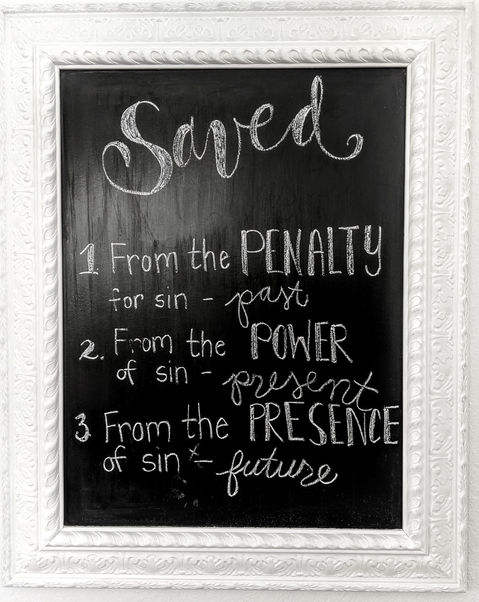 Saved
1. From the PENALTY
for sin - past
2. From the POWER
of sin - present
3 From the PRESENCE
of sin - future